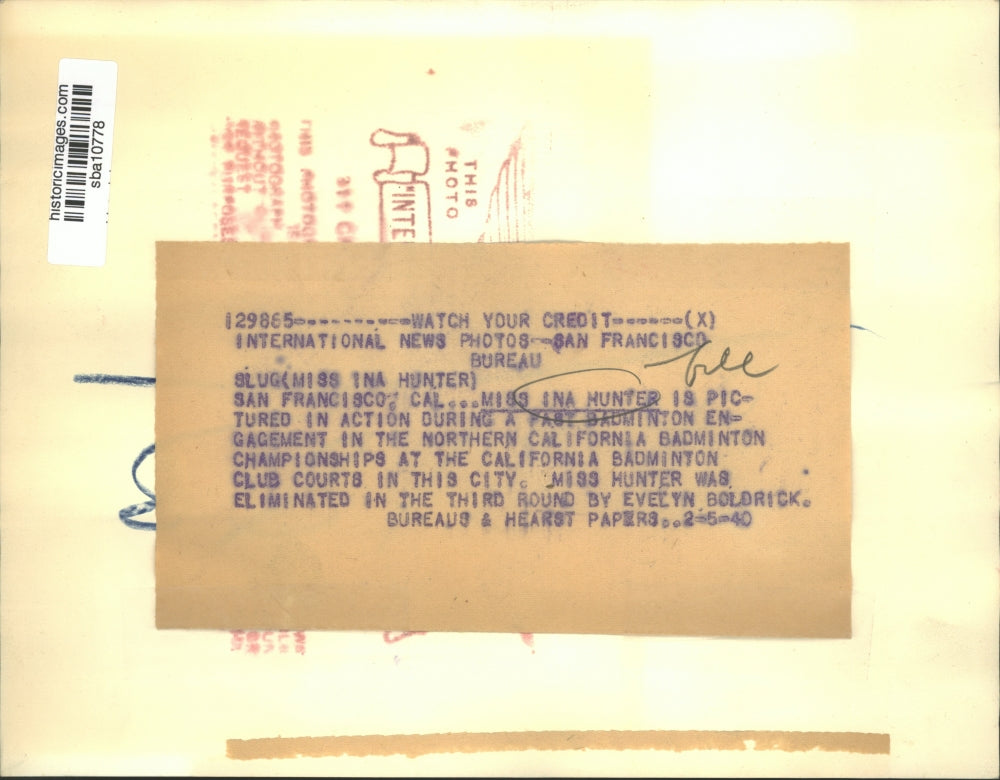 historicimages.com
sba10778
THIS
PHOTO
INTE
129865-----------WATCH YOUR CREDIT------(X)
INTERNATIONAL NEWS PHOTOS--SAN FRANCISCO
BUREAU
fill
SLUG(MISS INA HUNTER)
SAN FRANCISCO, CAL...MISS INA HUNTER IS PIC-
TURED IN ACTION DURING A FAST BADMINTON EN-
GAGEMENT IN THE NORTHERN CALIFORNIA BADMINTON
CHAMPIONSHIPS AT THE CALIFORNIA BADMINTON
CLUB COURTS IN THIS CITY. MISS HUNTER WAS
ELIMINATED IN THE THIRD ROUND BY EVELYN BOLDRICK.
BUREAUS & HEARST PAPERS..2-5-40